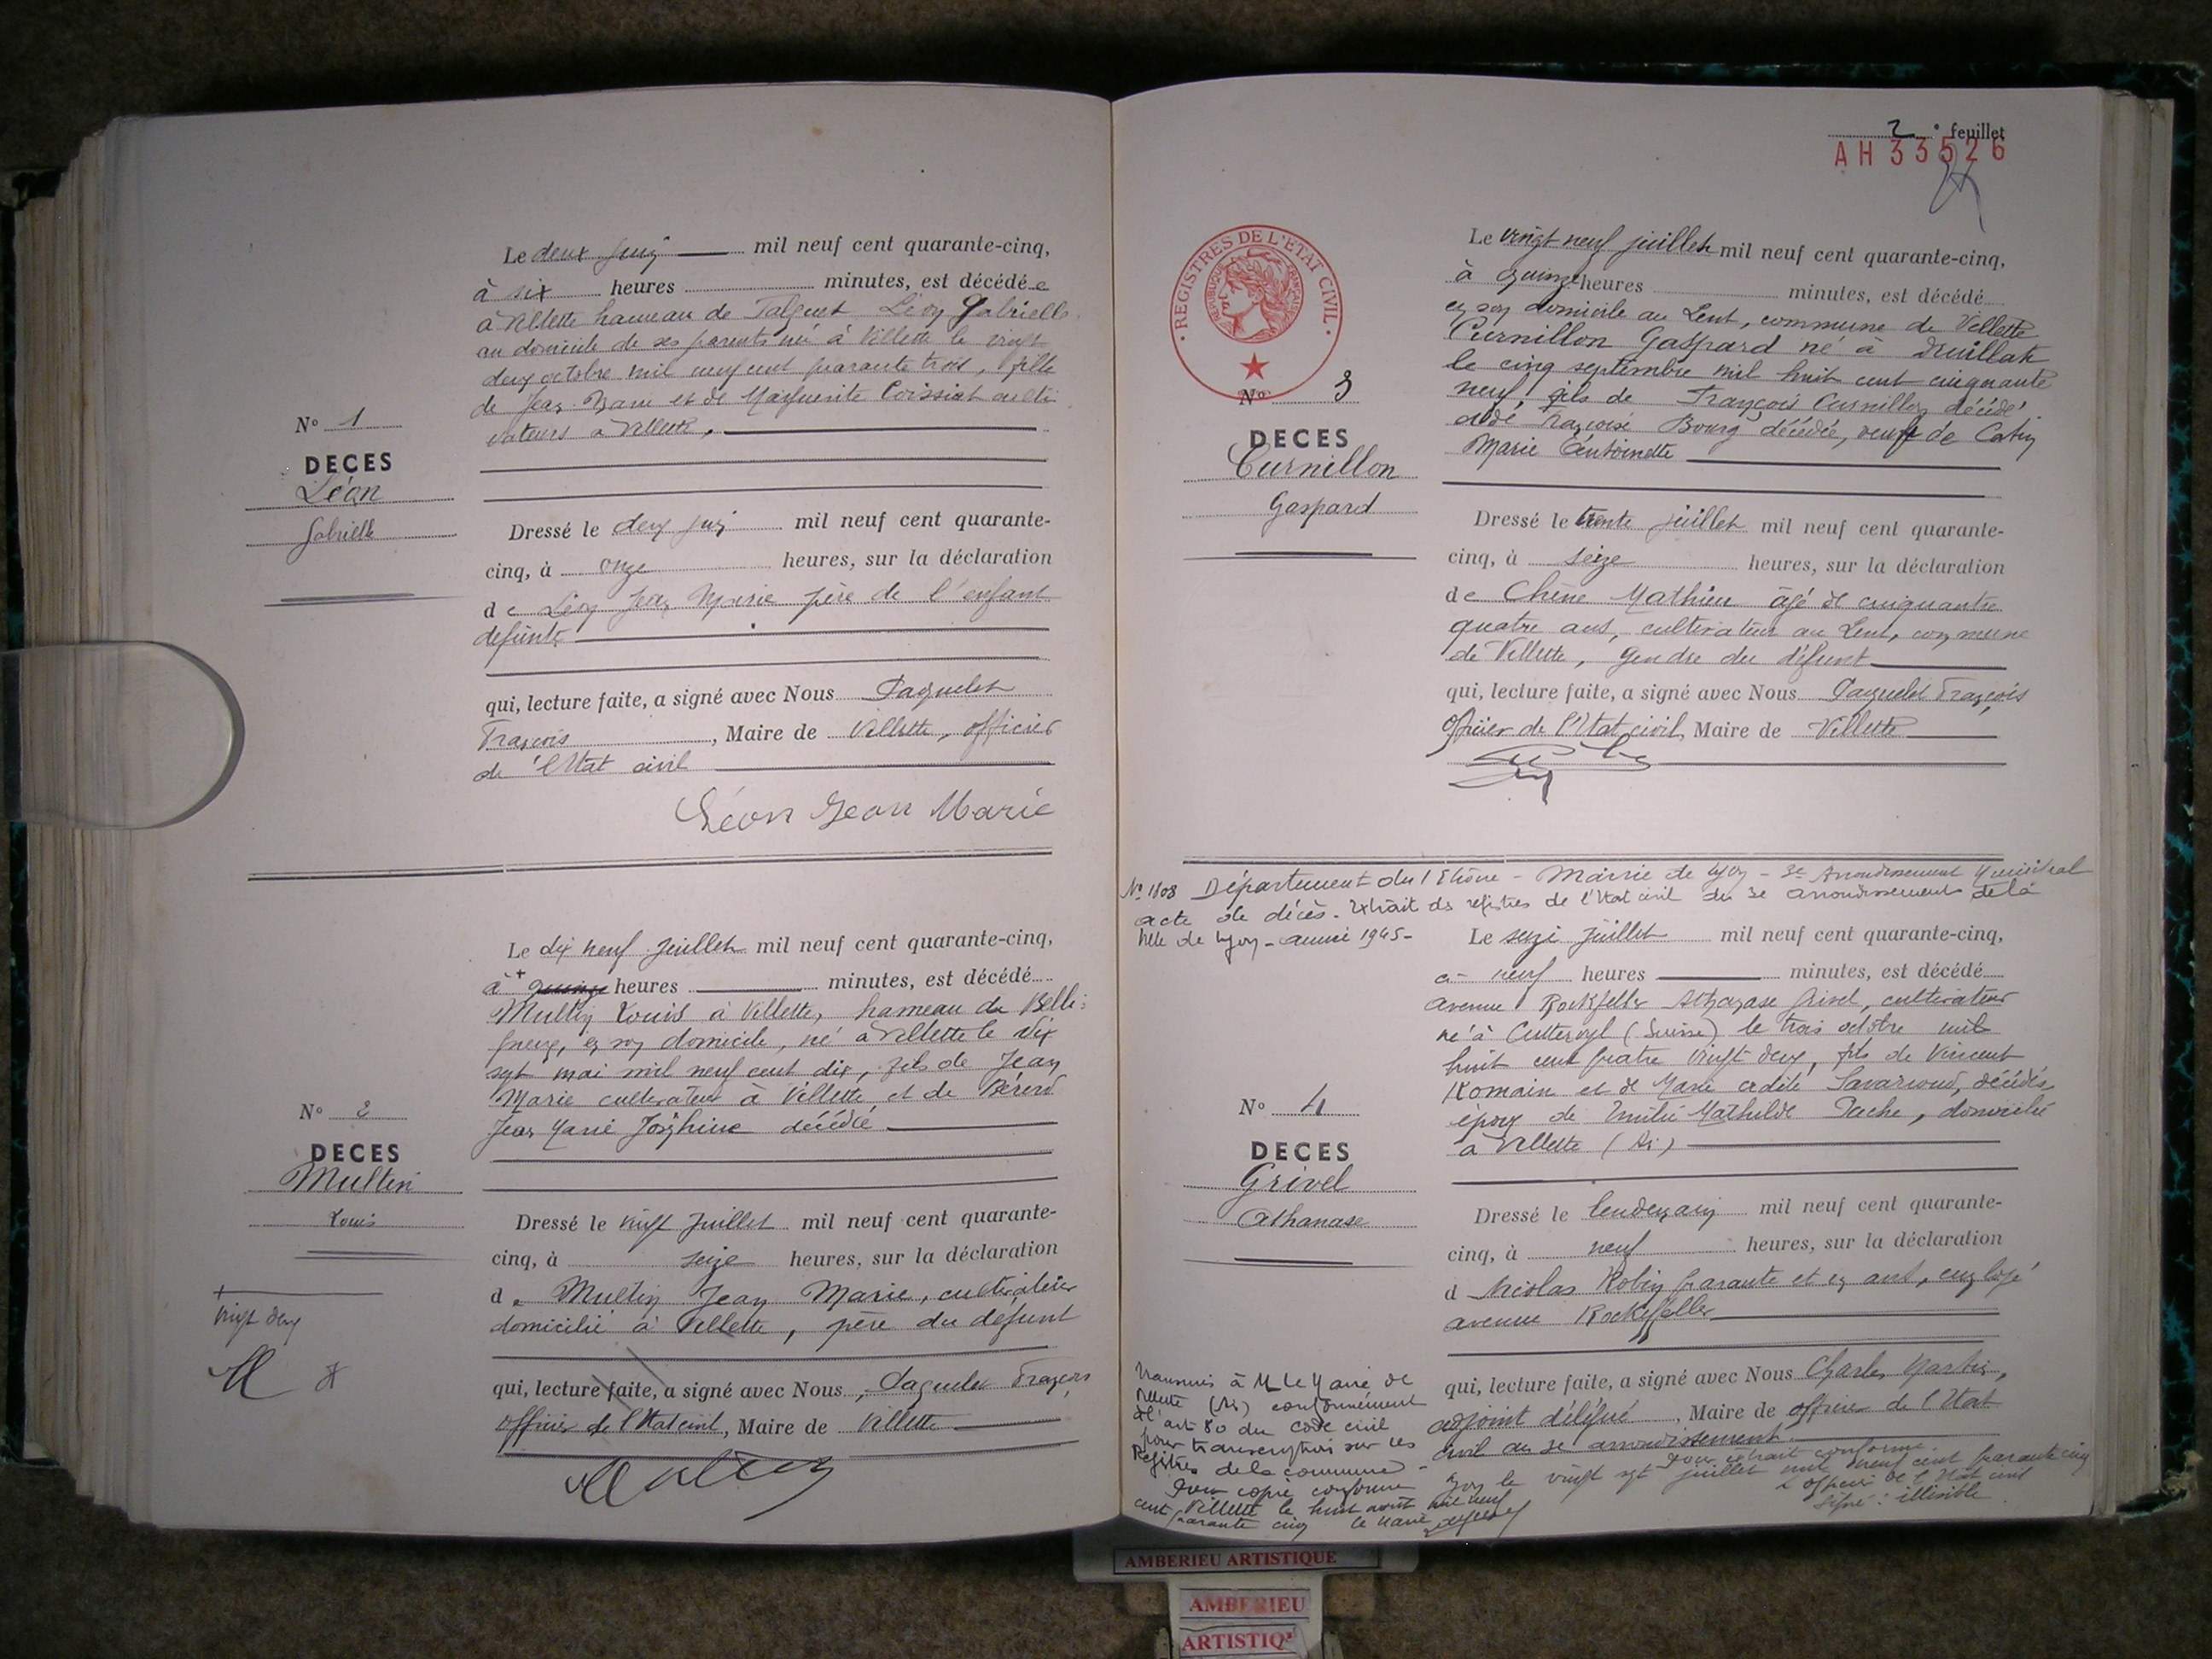 Le deux juin mil neuf cent quarante-cinq,
à six heures minutes, est décédée
à Villette hameau de Léon Gabrielle
au domicile de ses parents né à Villette le vingt
deux octobre mil neuf cent quarante trois, fille
de Jean Marie et de Marguerite Poissiat culti
vateurs à Villette.
N° 1
DECES
Léon
Gabrielle
Dressé le deux juin mil neuf cent quarante-
cinq, à onze heures, sur la déclaration
de Léon Jean Marie père de l'enfant
défunte
qui, lecture faite, a signé avec Nous Paquelet
François, Maire de Villette, officier
de l'Etat civil
Léon Jean Marie
Le dix neuf juillet mil neuf cent quarante-cinq,
à + quinze heures minutes, est décédé
Multin Louis à Villette, hameau de Belle-
en son domicile, né à Villette le dix
sept mai mil neuf cent dix, fils de Jean
Marie cultivateur à Villette et de Bérerd
Jean Marie Joséphine décédée
N° 2
DECES
Multin
Louis
Dressé le vingt juillet mil neuf cent quarante-
cinq, à seize heures, sur la déclaration
de Multin Jean Marie, cultivateur
domicilié à Villette, père du défunt
+
vingt deux
qui, lecture faite, a signé avec Nous, Paquelet François
officier de l'Etat civil, Maire de Villette
Multin
2e feuillet
AH 33526
REGISTRES DE L'ETAT CIVIL
REPUBLIQUE FRANÇAISE
Le vingt neuf juillet mil neuf cent quarante-cinq,
à quinze heures minutes, est décédé
en son domicile au Lent, commune de Villette
Curnillon Gaspard né à Druillat
le cinq septembre mil huit cent cinquante
neuf, fils de François Curnillon décédé
et de Françoise Bourg décédée, veuf de Catin
Marie Antoinette
N° 3
DECES
Curnillon
Gaspard
Dressé le trente juillet mil neuf cent quarante-
cinq, à seize heures, sur la déclaration
de Chêne Mathieu âgé de cinquante
quatre ans, cultivateur au Lent, commune
de Villette, gendre du défunt
qui, lecture faite, a signé avec Nous Paquelet François,
Officier de l'Etat civil, Maire de Villette
N° 1808 Département du Rhône - Mairie de Lyon - 3e Arrondissement Municipal
acte de décès. Extrait des registres de l'Etat civil du 3e arrondissement de la
Ville de Lyon - année 1945 -
Le seize juillet mil neuf cent quarante-cinq,
à neuf heures minutes, est décédé
avenue Rockfeller Athanase Grivel, cultivateur
né à (Suisse) le trois octobre mil
huit cent quatre vingt deux, fils de Vincent
Romain et de Marie Savarioud, décédés
époux de Emilie Mathilde Pache, domicilié
à Villette (Ain)
N° 4
DECES
Grivel
Athanase
Dressé le lendemain mil neuf cent quarante-
cinq, à neuf heures, sur la déclaration
d Nicolas Robin quarante et un ans, employé
avenue Rockfeller
qui, lecture faite, a signé avec Nous Charles Martin,
adjoint délégué, Maire de officier de l'Etat
civil du 3e arrondissement.
Pour extrait conforme.
Lyon le vingt sept juillet mil neuf cent quarante cinq
L'officier de l'Etat civil
Signé : illisible
Transmis à M. le Maire de
Villette (Ain) conformément
à l'art 80 du code civil
pour transcription sur les
Registres de la commune -
Pour copie conforme
Villette le huit août mil neuf
cent quarante cinq le Maire
AMBERIEU ARTISTIQUE
AMBERIEU
ARTISTIQ